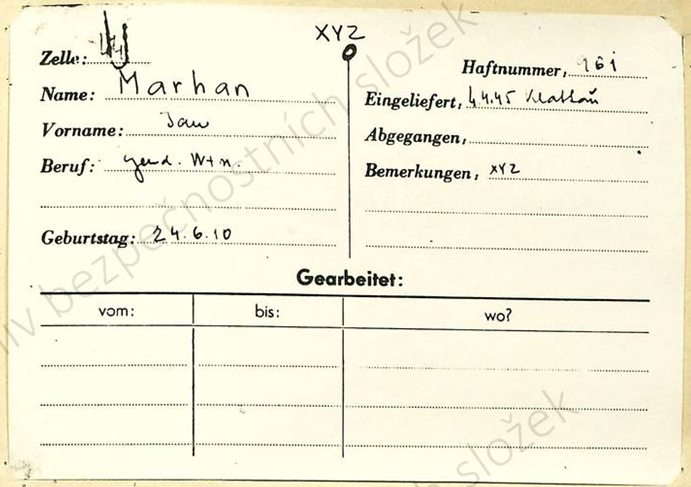 XYZ
Zelle: 44
Name: Marhan
Vorname: Jan
Beruf: gend. Wtm.
Geburtstag: 24.6.10
Haftnummer, 161
Eingeliefert, 4.4.45 Klattau
Abgegangen,
Bemerkungen, XYZ
Gearbeitet:
vom: bis: wo?
iv bezpečnostních složek
h složek